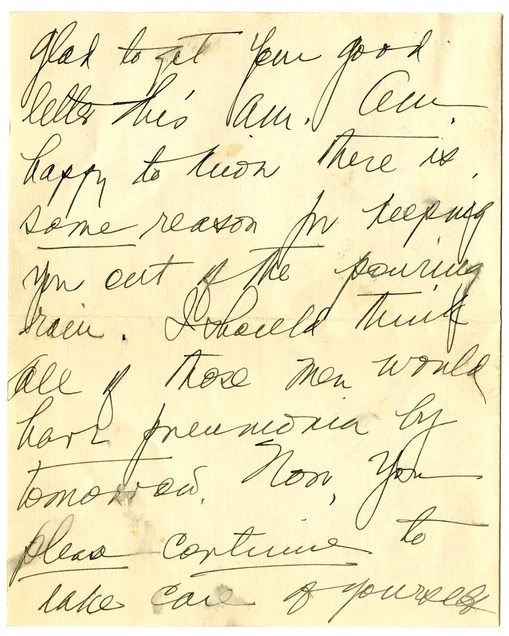 glad to get your good
letter this am. Am
happy to know there is
some reason for keeping
you out of the pouring
rain. I should think
all of those men would
have pneumonia by
tomorrow. Now, you
please continue to
take care of yourself